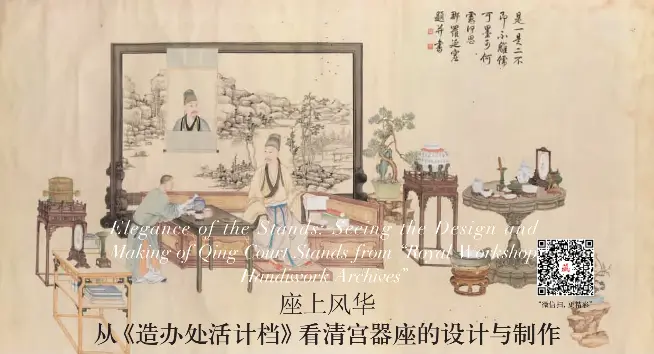 是一是二不
即不離儒
可墨可何
慮何思
那羅延窟
題并書
Elegance of the Stands: Seeing the Design and
Making of Qing Court Stands from “Royal Workshops
Handiwork Archives”
座上风华
从《造办处活计档》看清宫器座的设计与制作